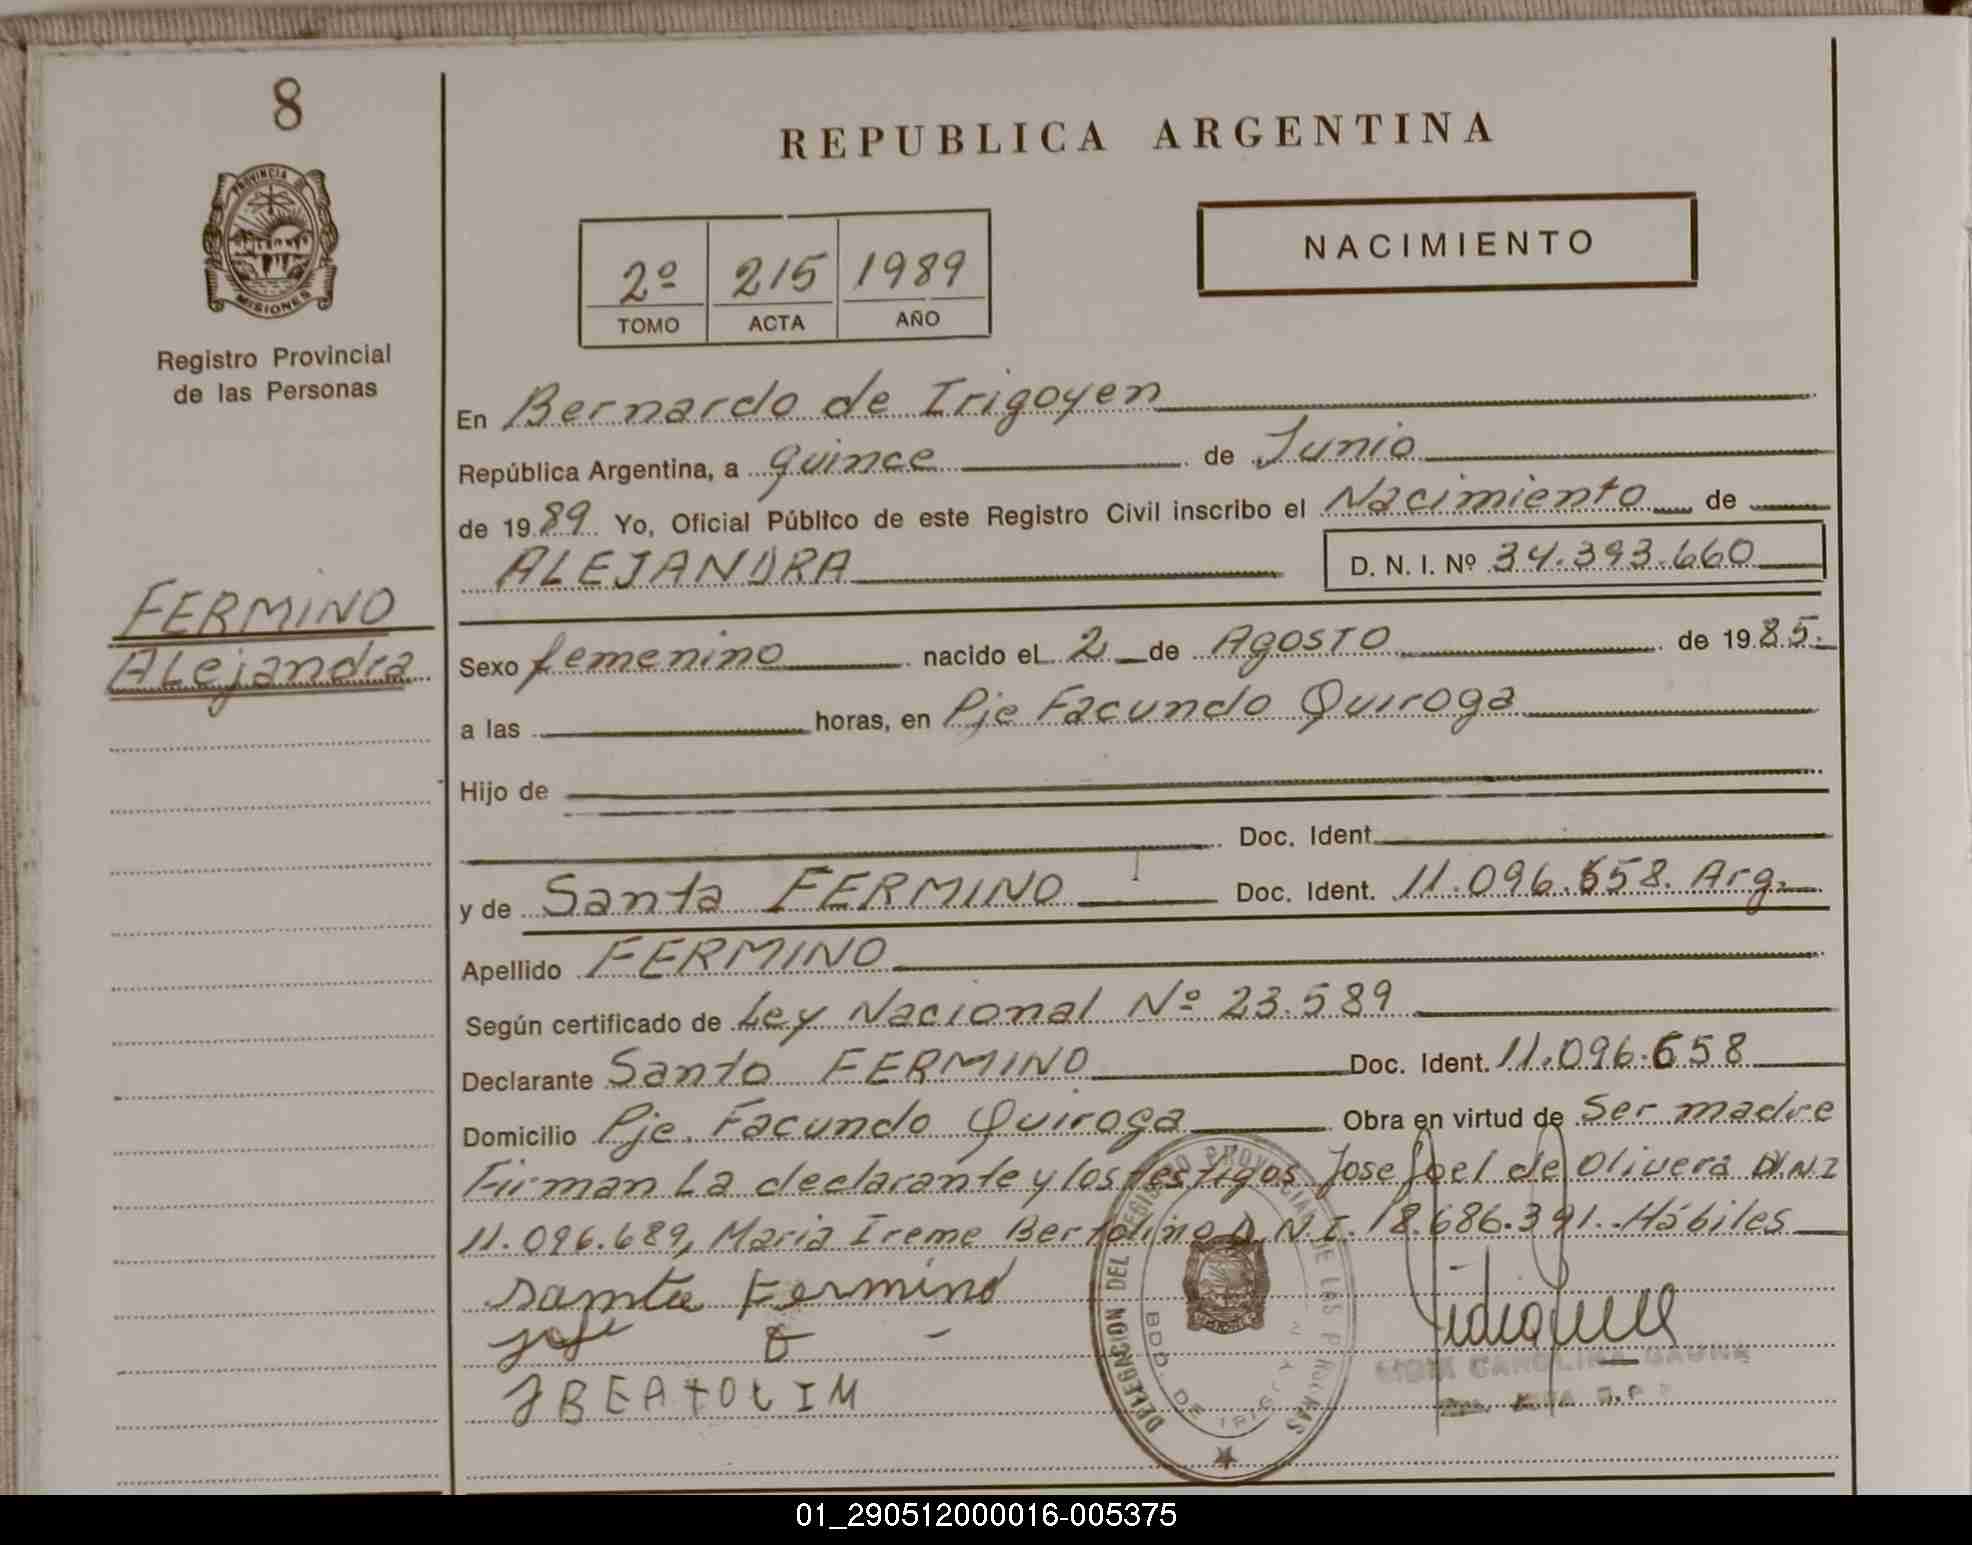 8
PROVINCIA DE
MISIONES
Registro Provincial
de las Personas
FERMINO
Alejandra
REPUBLICA ARGENTINA
2º 215 1989
TOMO ACTA AÑO
NACIMIENTO
En Bernardo de Irigoyen
República Argentina, a quince de Junio
de 1989 Yo, Oficial Público de este Registro Civil inscribo el Nacimiento de
ALEJANDRA D. N. I. Nº 34.393.660
Sexo femenino nacido el 2 de Agosto de 1985.
a las horas, en Pje Facundo Quiroga
Hijo de
Doc. Ident.
y de Santa FERMINO Doc. Ident. 11.096.658. Arg.
Apellido FERMINO
Según certificado de Ley Nacional Nº 23.589
Declarante Santo FERMINO Doc. Ident. 11.096.658
Domicilio Pje. Facundo Quiroga Obra en virtud de Ser madre
Firman La declarante y los testigos Jose Joel de Olivera D.N.I
11.096.689, Maria Ireme Bertolino D.N.I. 18.686.391. Hábiles
Santa Fermino
José
DELEGACION DEL REGISTRO PROVINCIAL DE LAS PERSONAS
BDO. DE IRIGOYEN
CAROLINA
01_290512000016-005375